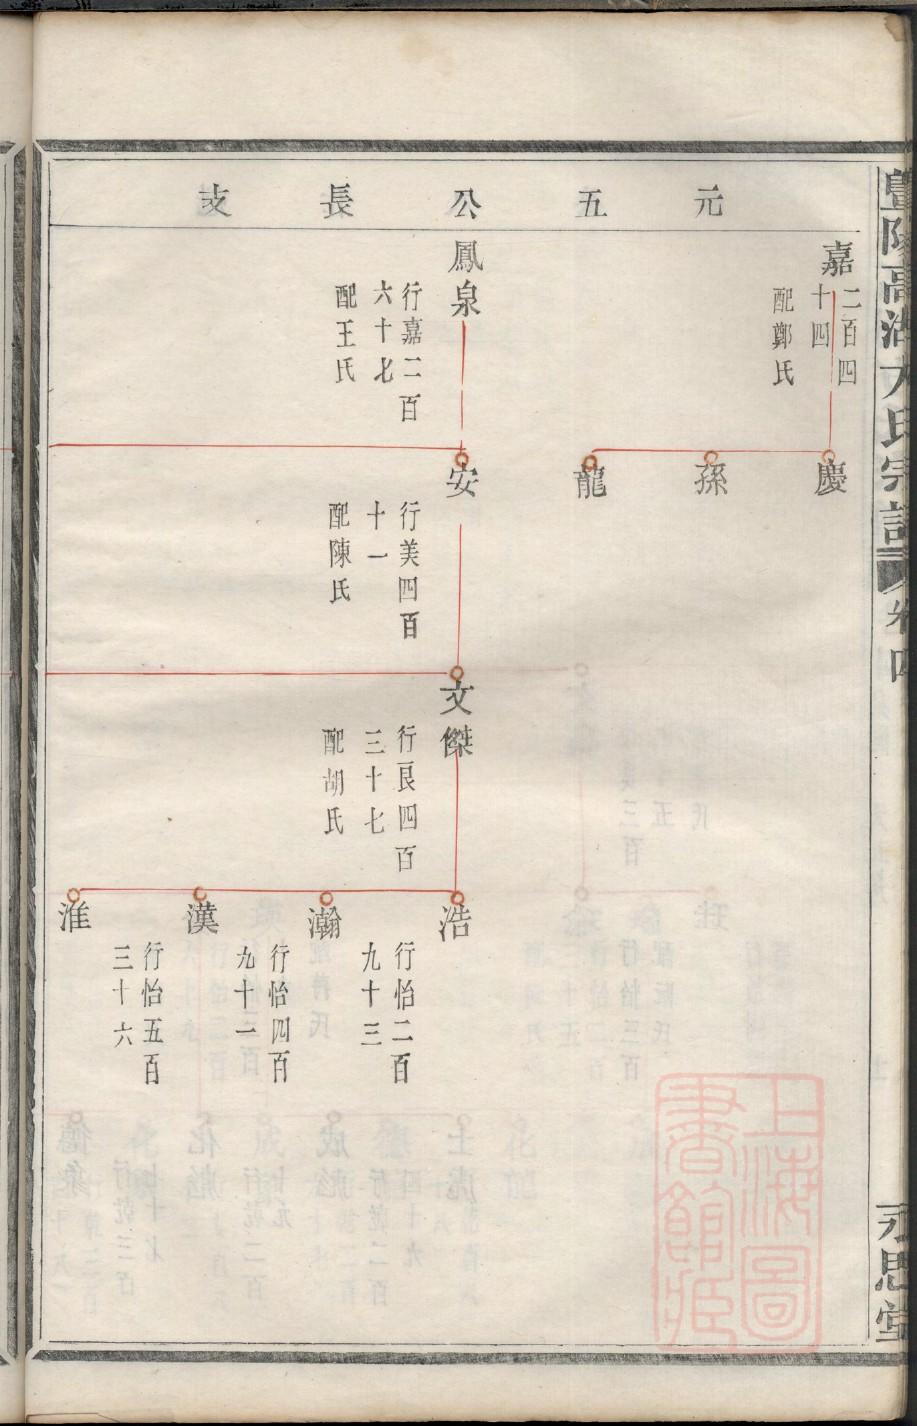 元五公長支
嘉
二百四
十四
配鄭氏
慶
孫
龍
鳳泉
行嘉二百
六十七
配王氏
安
行美四百
十一
配陳氏
文傑
行良四百
三十七
配胡氏
浩
行怡二百
九十三
瀚
漢
行怡四百
九十一
淮
行怡五百
三十六
卷四
永思堂
上海圖
書館藏